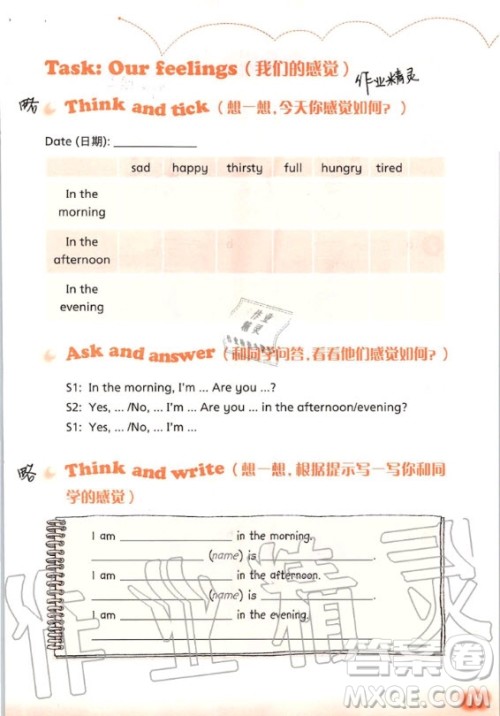 Task: Our feelings（我们的感觉）作业精灵
略 Think and tick（想一想,今天你感觉如何？）
Date (日期): ____________
sad happy thirsty full hungry tired
In the morning
In the afternoon
In the evening
作业精灵
Ask and answer（和同学问答,看看他们感觉如何？）
S1: In the morning, I'm ... Are you ...?
S2: Yes, ... /No, ... I'm ... Are you ... in the afternoon/evening?
S1: Yes, ... /No, ... I'm ...
略 Think and write（想一想,根据提示写一写你和同
学的感觉）
I am ____________ in the morning.
____________ (name) is ____________.
I am ____________ in the afternoon.
____________ (name) is ____________.
I am ____________ in the evening.
____________
作业精灵
答案圈
MXQE.COM